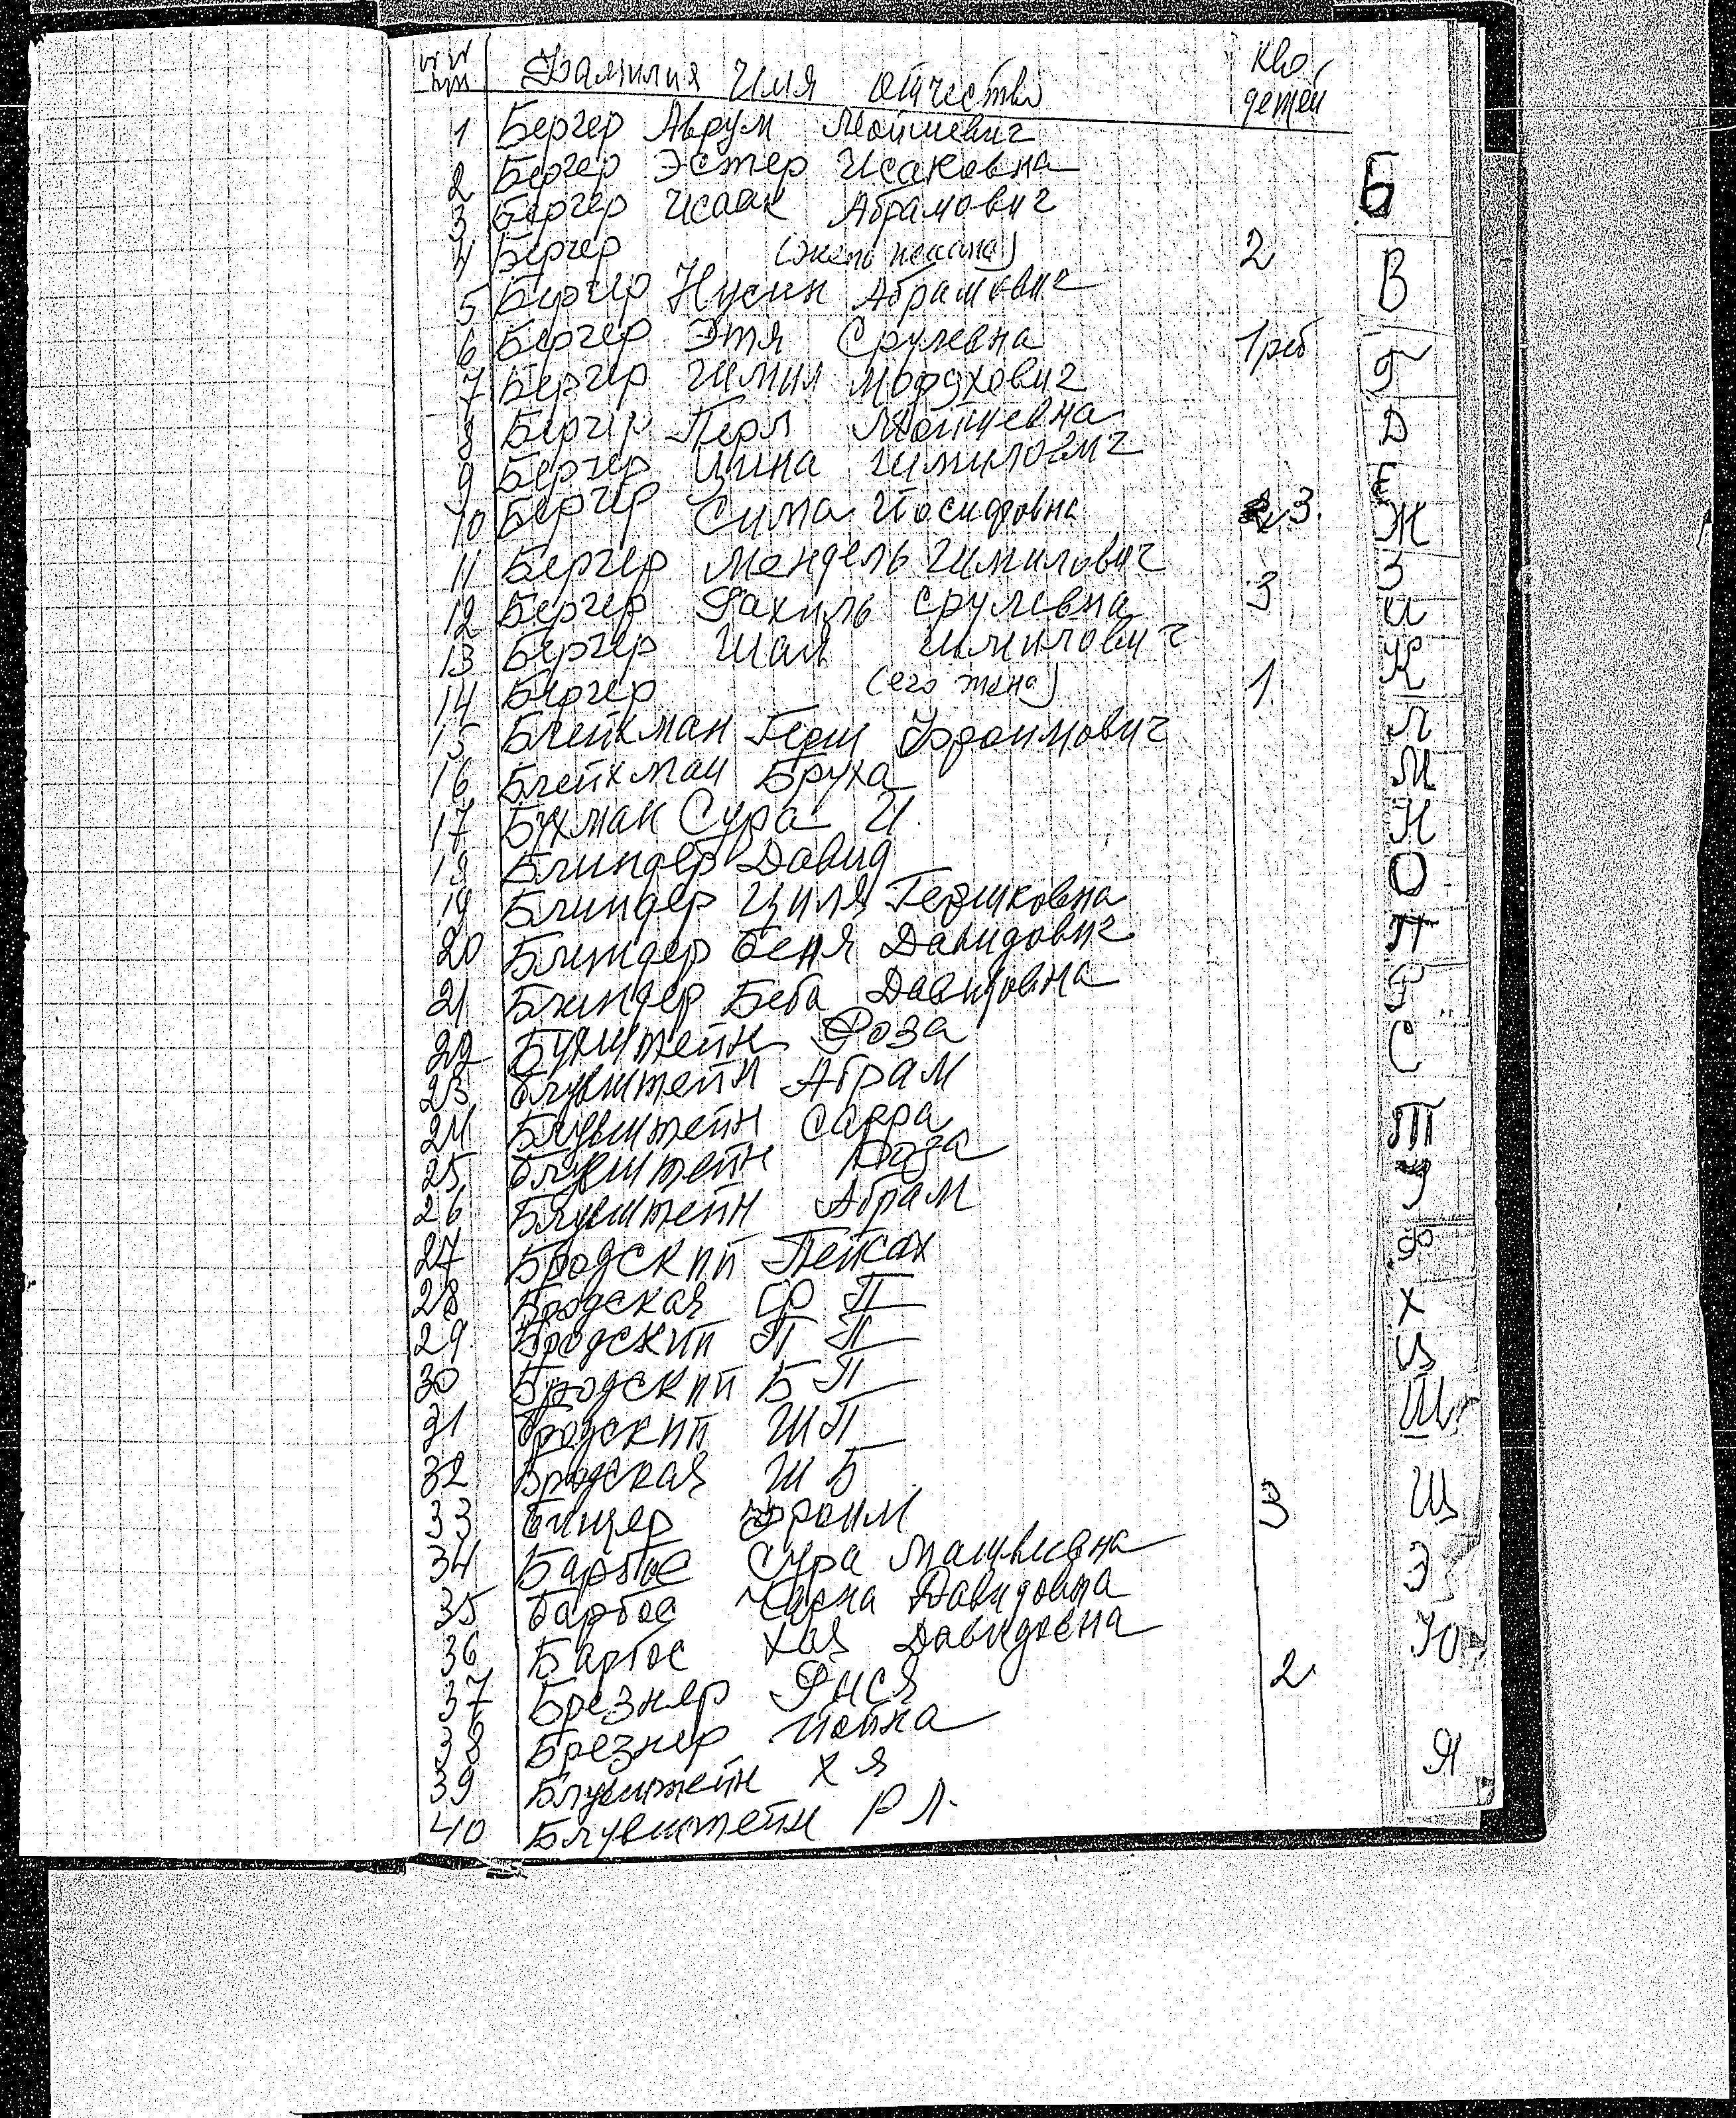 №№ пп Фамилия Имя Отчество Кво детей
1 Бергер Аврум Мойшевич
2 Бергер Эстер Исаковна
3 Бергер Исаак Абрамович
4 Бергер (жена Исаака) 2
5 Бергер Нусин Абрамович
6 Бергер Этя Срулевна 1 реб
7 Бергер Шмил Мордхович
8 Бергер Перл Мойшевна
9 Бергер Шмилович
10 Бергер Сима Иосифовна 3.
11 Бергер Мендель Шмилович
12 Бергер Рахиль Срулевна 3
13 Бергер Шая Шмилович
14 Бергер (его жена) 1.
15 Блейхман Герш Эфроимович
16 Блейхман Бруха
17 Бухман Сура И.
18 Блиндер Давид
19 Блиндер Циля Гершковна
20 Блиндер Беня Давидович
21 Блиндер Беба Давидовна
22 Роза
23 Блувштейн Абрам
24 Блувштейн Сарра
25 Блувштейн Роза
26 Блувштейн Абрам
27 Бродский Пейсах
28 Бродская П
29. Бродский П П
30 Бродский Б П
31 Бродский Ш П
32 Бродская Ш Б
33 Эфроим 3
34 Барбос Сура
35 Барбос Давидовна
36 Барбос Хая Давидовна
37 Брезнер Рися 2
38 Брезнер
39 Блувштейн Х Я
40 Блувштейн Р Л.
Б
В
Г
Д
Е
Ж
З
И
К
Л
М
Н
О
П
Р
С
Т
У
Ф
Х
Ц
Ш
Щ
Э
Ю
Я